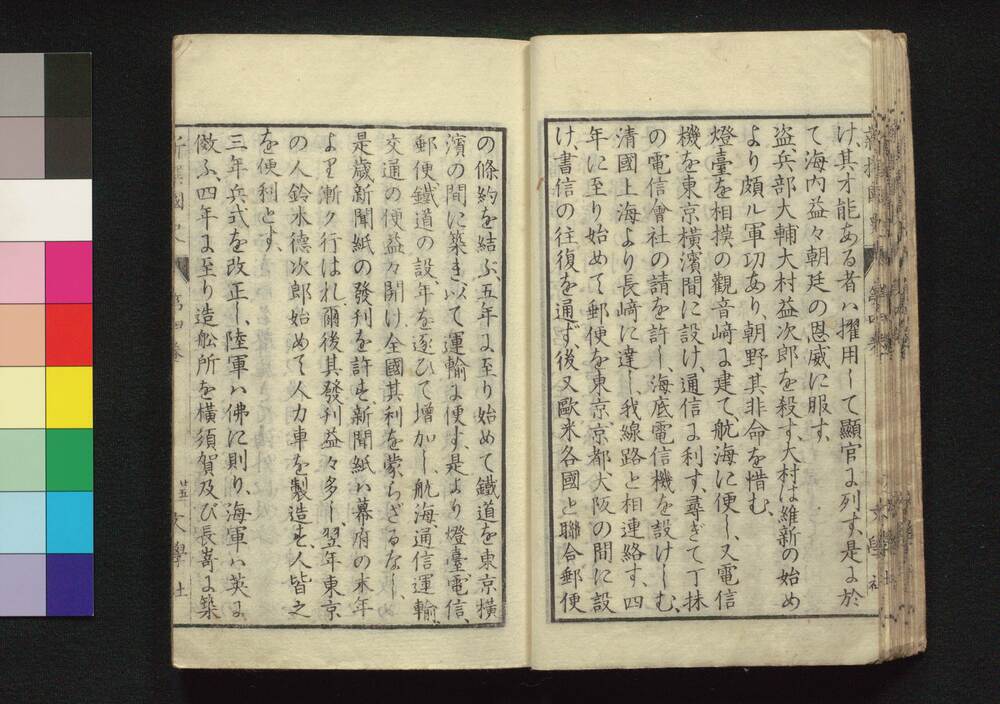 け、其才能ある者ハ擢用して顯官に列す、是に於
て海内益々朝廷の恩威に服す、
盗、兵部大輔大村益次郎を殺す、大村は維新の始め
より頗ル軍功あり、朝野其非命を惜む、
燈臺を相摸の觀音﨑に建て、航海に便し、又電信
機を東京横濱間に設け、通信に利す、尋ぎて丁抹
の電信會社の請を許し海底電信機を設けしむ、
清國上海より長﨑に達し、我線路と相連絡す、四
年に至り始めて郵便を東京、京都、大阪の間に設
け、書信の往復を通ず、後又歐米各國と聯合郵便
の條約を結ぶ、五年に至り始めて鐵道を東京横
濱の間に築き、以て運輸に便す、是より燈臺、電信、
郵便、鐵道の設、年を逐ひて增加し、航海、通信、運輸、
交通の便益々開け全國其利を蒙らざるなし、
是歳新聞紙の發刊を許す、新聞紙ハ幕府の末年
より漸ク行はれ、爾後其發刊益々多し、翌年東京
の人鈴木德次郎始めて人力車を製造す、人皆之
を便利とす、
三年兵式を改正し、陸軍ハ佛に則り、海軍ハ英に
倣ふ、四年に至り造舩所を横須賀及び長﨑に築
第四卷
文學社